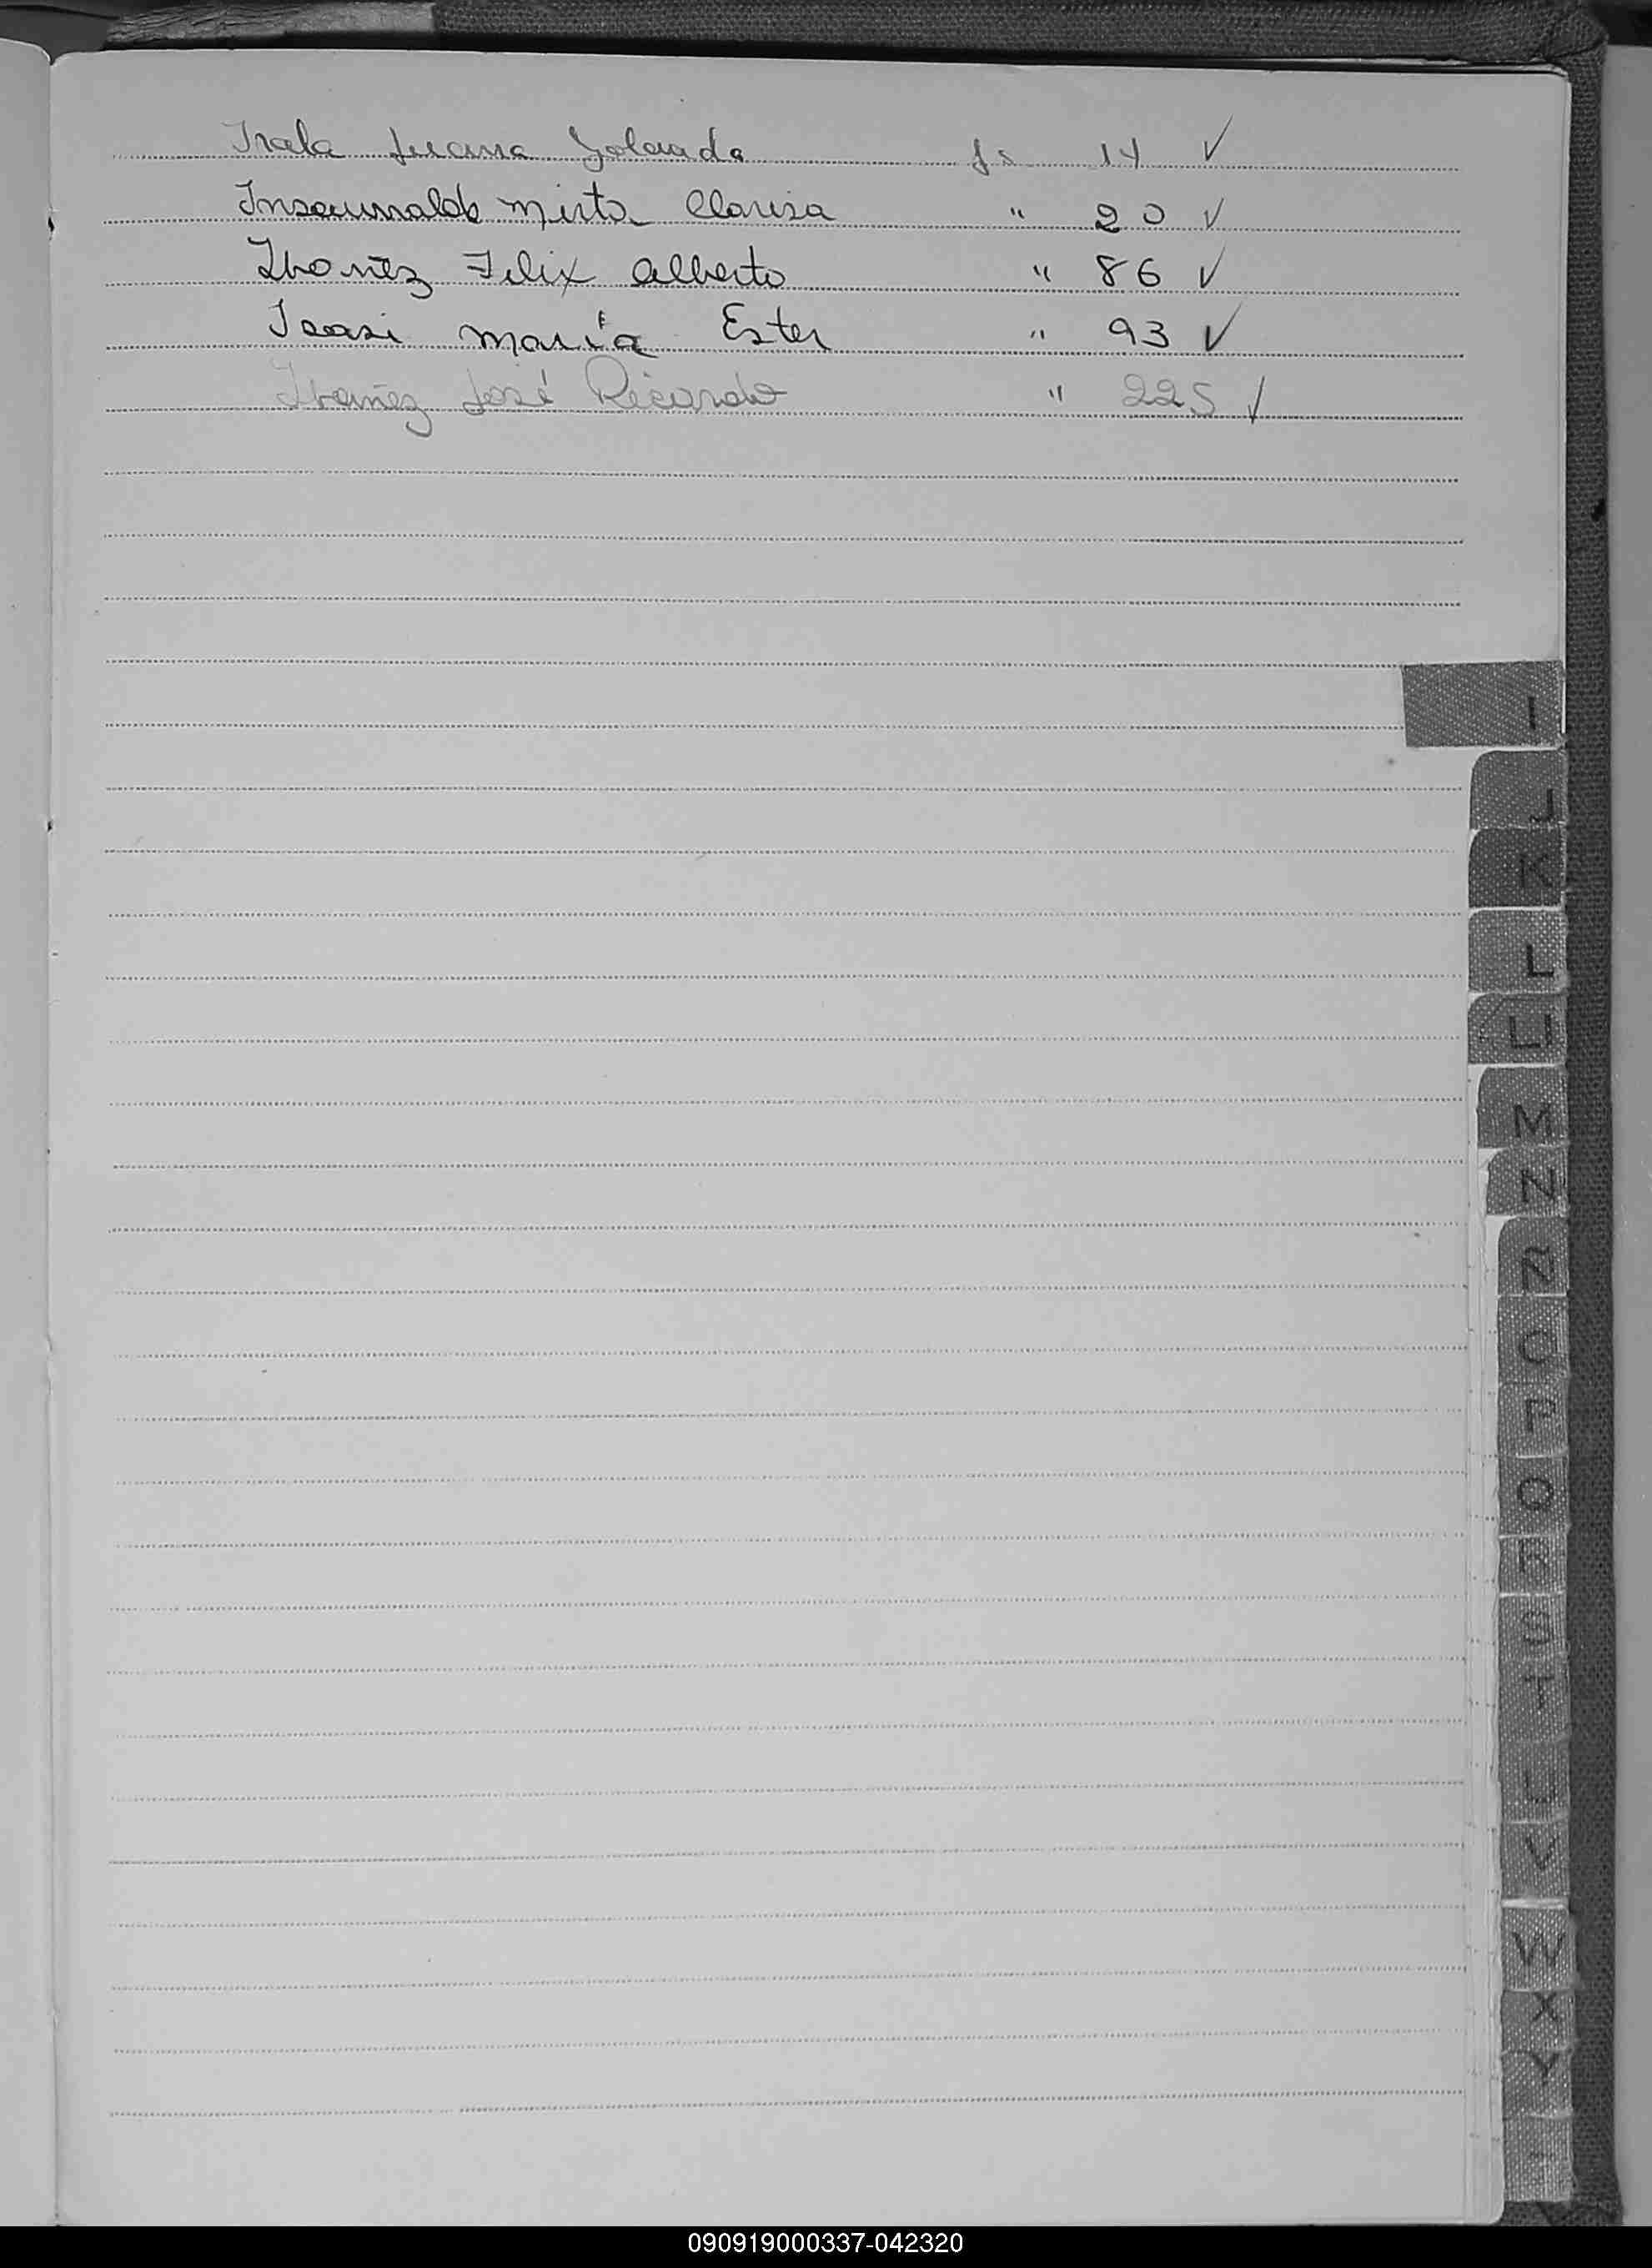 Irala Juana Yolanda fs 14 ✓
Insaurralde Mirta Clarisa " 20 ✓
Ibañez Felix Alberto " 86 ✓
Isasi María Ester " 93 ✓
Ibañez José Ricardo " 225 ✓
I
J
K
L
LL
M
N
Ñ
O
P
Q
R
S
T
U
V
W
X
Y
090919000337-042320